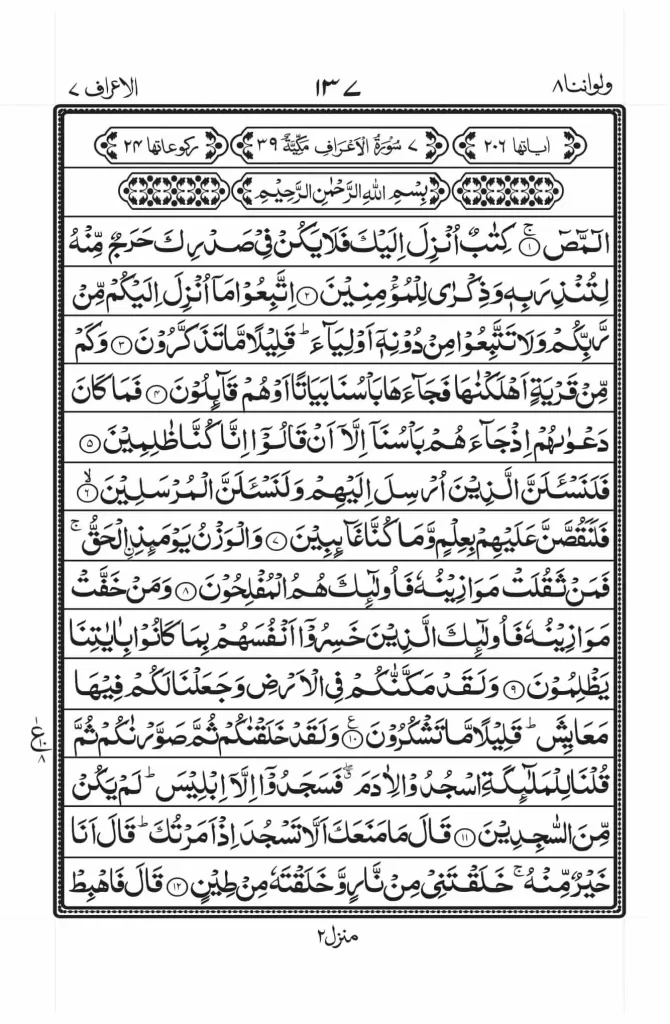 ولواننا ٨
١٣٧
الاعراف ٧
اياتها ٢٠٦
٧ سُوْرَةُ الْاَعْرَافِ مَكِّيَّةٌ ٣٩
ركوعاتها ٢٤
بِسْمِ اللّٰهِ الرَّحْمٰنِ الرَّحِيْمِ
الٓمّٓصٓ ۚ﴿١﴾ كِتٰبٌ اُنْزِلَ اِلَيْكَ فَلَا يَكُنْ فِيْ صَدْرِكَ حَرَجٌ مِّنْهُ
لِتُنْذِرَ بِهٖ وَذِكْرٰى لِلْمُؤْمِنِيْنَ ﴿٢﴾ اِتَّبِعُوْا مَاۤ اُنْزِلَ اِلَيْكُمْ مِّنْ
رَّبِّكُمْ وَلَا تَتَّبِعُوْا مِنْ دُوْنِهٖۤ اَوْلِيَآءَ ؕ قَلِيْلًا مَّا تَذَكَّرُوْنَ ﴿٣﴾ وَكَمْ
مِّنْ قَرْيَةٍ اَهْلَكْنٰهَا فَجَآءَهَا بَاْسُنَا بَيَاتًا اَوْ هُمْ قَآئِلُوْنَ ﴿٤﴾ فَمَا كَانَ
دَعْوٰىهُمْ اِذْ جَآءَهُمْ بَاْسُنَاۤ اِلَّاۤ اَنْ قَالُوْۤا اِنَّا كُنَّا ظٰلِمِيْنَ ﴿٥﴾
فَلَنَسْـَٔلَنَّ الَّذِيْنَ اُرْسِلَ اِلَيْهِمْ وَلَنَسْـَٔلَنَّ الْمُرْسَلِيْنَ ۙ﴿٦﴾
فَلَنَقُصَّنَّ عَلَيْهِمْ بِعِلْمٍ وَّمَا كُنَّا غَآئِبِيْنَ ﴿٧﴾ وَالْوَزْنُ يَوْمَئِذِ ۨالْحَقُّ ۚ
فَمَنْ ثَقُلَتْ مَوَازِيْنُهٗ فَاُولٰٓئِكَ هُمُ الْمُفْلِحُوْنَ ﴿٨﴾ وَمَنْ خَفَّتْ
مَوَازِيْنُهٗ فَاُولٰٓئِكَ الَّذِيْنَ خَسِرُوْۤا اَنْفُسَهُمْ بِمَا كَانُوْا بِاٰيٰتِنَا
يَظْلِمُوْنَ ﴿٩﴾ وَلَقَدْ مَكَّنّٰكُمْ فِي الْاَرْضِ وَجَعَلْنَا لَكُمْ فِيْهَا
مَعَايِشَ ؕ قَلِيْلًا مَّا تَشْكُرُوْنَ ﴿١٠﴾ع وَلَقَدْ خَلَقْنٰكُمْ ثُمَّ صَوَّرْنٰكُمْ ثُمَّ
ع ١٠ ٨
قُلْنَا لِلْمَلٰٓئِكَةِ اسْجُدُوْا لِاٰدَمَ ۖۗ فَسَجَدُوْۤا اِلَّاۤ اِبْلِيْسَ ؕ لَمْ يَكُنْ
مِّنَ السّٰجِدِيْنَ ﴿١١﴾ قَالَ مَا مَنَعَكَ اَلَّا تَسْجُدَ اِذْ اَمَرْتُكَ ؕ قَالَ اَنَا
خَيْرٌ مِّنْهُ ۚ خَلَقْتَنِيْ مِنْ نَّارٍ وَّخَلَقْتَهٗ مِنْ طِيْنٍ ﴿١٢﴾ قَالَ فَاهْبِطْ
منزل ٢